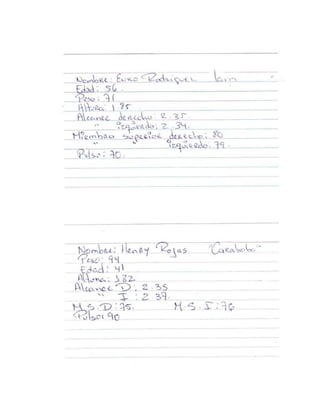 Nombre: Euro Rodriguez
Edad: 56.
Peso: 71
Altura: 1.85
Alcance derecho: 2.35
" izquierdo: 2.34.
Miembro superior derecho: 80
" izquierdo: 79.
Pulso: 70.
Nombre: Henry Rojas "Carabobo"
Peso: 94
Edad: 41
Altura: 1.82
Alcance D: 2.35
" I: 2.37.
M.S.D: 75. M.S.I: 76
Pulso: 90